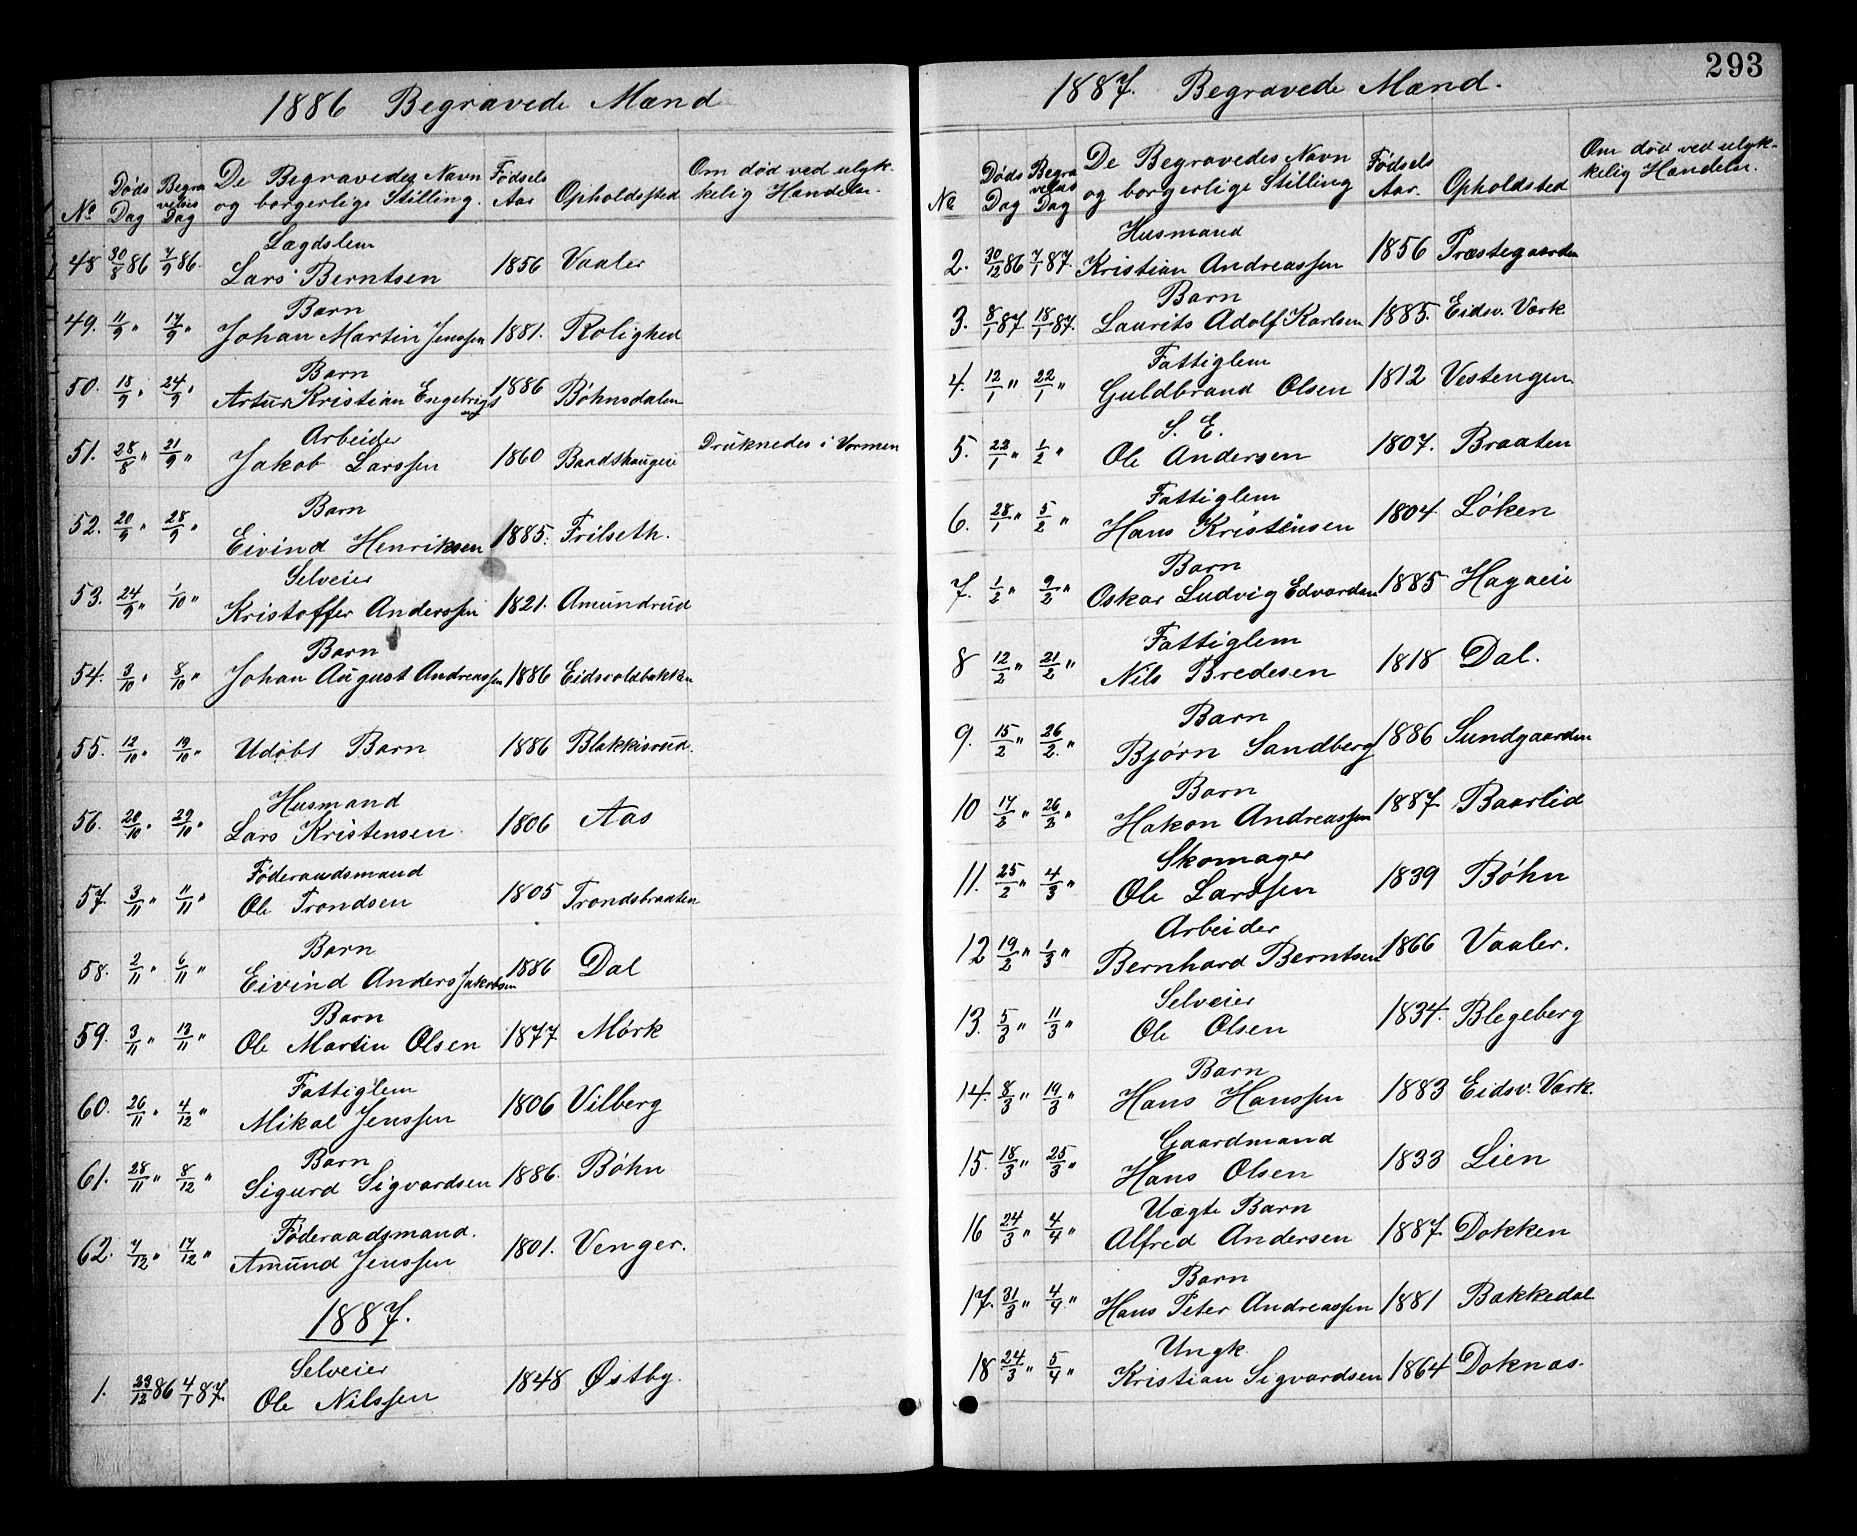 1886 Begravede Mænd
No Døds Dag Begravelses Dag De Begravedes Navn og borgerlige Stilling. Fødsels Aar Opholdssted Om død ved ulykkelig Hændelse.
48 30/8 86 7/9 86. Lægdslem
Lars Berntsen 1856 Vaaler
49. 11/9 " 17/9 " Barn
Johan Martin Jenssen 1881. Rolighed
50. 18/9 " 24/9 " Barn
Artur Kristian Engebrigtsen 1886 Bøhnsdalen
51. 28/8 " 21/9 " Arbeider
Jakob Larssen 1860 Baadshaugeie Druknedes i Vormen
52. 20/9 " 28/9 " Barn
Eivind Henriksen 1885. Frilseth.
53. 24/9 " 1/10 " Selveier
Kristoffer Anderssen 1821. Amundrud
54. 3/10 " 8/10 " Barn
Johan August Andreassen 1886 Eidsvoldbakken
55. 12/10 " 19/10 " Udøbt Barn 1886 Blakkisrud.
56. 20/10 " 29/10 " Husmand
Lars Kristensen 1806 Aas
57. 3/11 " 11/11 " Føderaadsmand
Ole Trondsen 1805 Trondsbraaten
58. 2/11 " 6/11 " Barn
Eivind Anders Jakobsen 1886 Dal
59. 3/11 " 13/11 " Barn
Ole Martin Olsen 1877 Mørk
60. 26/11 " 4/12 " Fattiglem
Mikal Jenssen 1806 Vilberg
61. 28/11 " 8/12 " Barn
Sigurd Sigvardsen 1886. Bøhn
62. 7/12 " 17/12 " Føderaadsmand.
Amund Jenssen 1801. Venger.
1887.
1. 29/12 86 4/1 87. Selveier
Ole Nilssen 1848 Østby.
293
1887. Begravede Mænd.
No Døds Dag Begravelses Dag De Begravedes Navn og borgerlige Stilling Fødsels Aar. Opholdsted Om død ved ulykkelig Hændelse.
2. 30/12 86 7/1 87. Husmand
Kristian Andreassen 1856 Præstegaarden
3. 8/1 87. 18/1 87. Barn
Laurits Adolf Karlsen 1885. Eidsv. Værk
4. 12/1 " 22/1 " Fattiglem
Guldbrand Olsen 1812 Vestengen
5. 22/1 " 1/2 " S. E.
Ole Andersen 1807. Braaten
6. 28/1 " 5/2 " Fattiglem
Hans Kristensen 1804 Løken
7. 1/2 " 9/2 " Barn
Oskar Ludvig Edvardsen 1885 Hagaeie
8 12/2 " 21/2 " Fattiglem
Nils Bredesen 1818 Dal.
9. 15/2 " 26/2. " Barn
Bjørn Sandberg 1886 Sundgaarden
10 17/2 " 26/2 " Barn
Hakon Andreassen 1887 Baarlid
11. 25/2 " 4/3 " Skomager
Ole Larssen 1839 Bøhn
12 19/2 " 1/3 " Arbeider
Bernhard Berntsen 1866 Vaaler.
13. 5/3 " 11/3 " Selveier
Ole Olsen 1834. Blegeberg
14. 8/3 " 19/3 " Barn
Hans Hanssen 1883 Eidsv. Værk.
15. 18/3 " 25/3 " Gaardmand
Hans Olsen 1833 Lien
16 24/3 " 4/4 " Uægte Barn
Alfred Andersen 1887. Dokken
17. 31/3 " 4/4 " Barn
Hans Peter Andreassen 1881 Bakkedal
18 24/3 " 5/4 " Ungk.
Kristian Sigvardsen 1864 Doknæs.